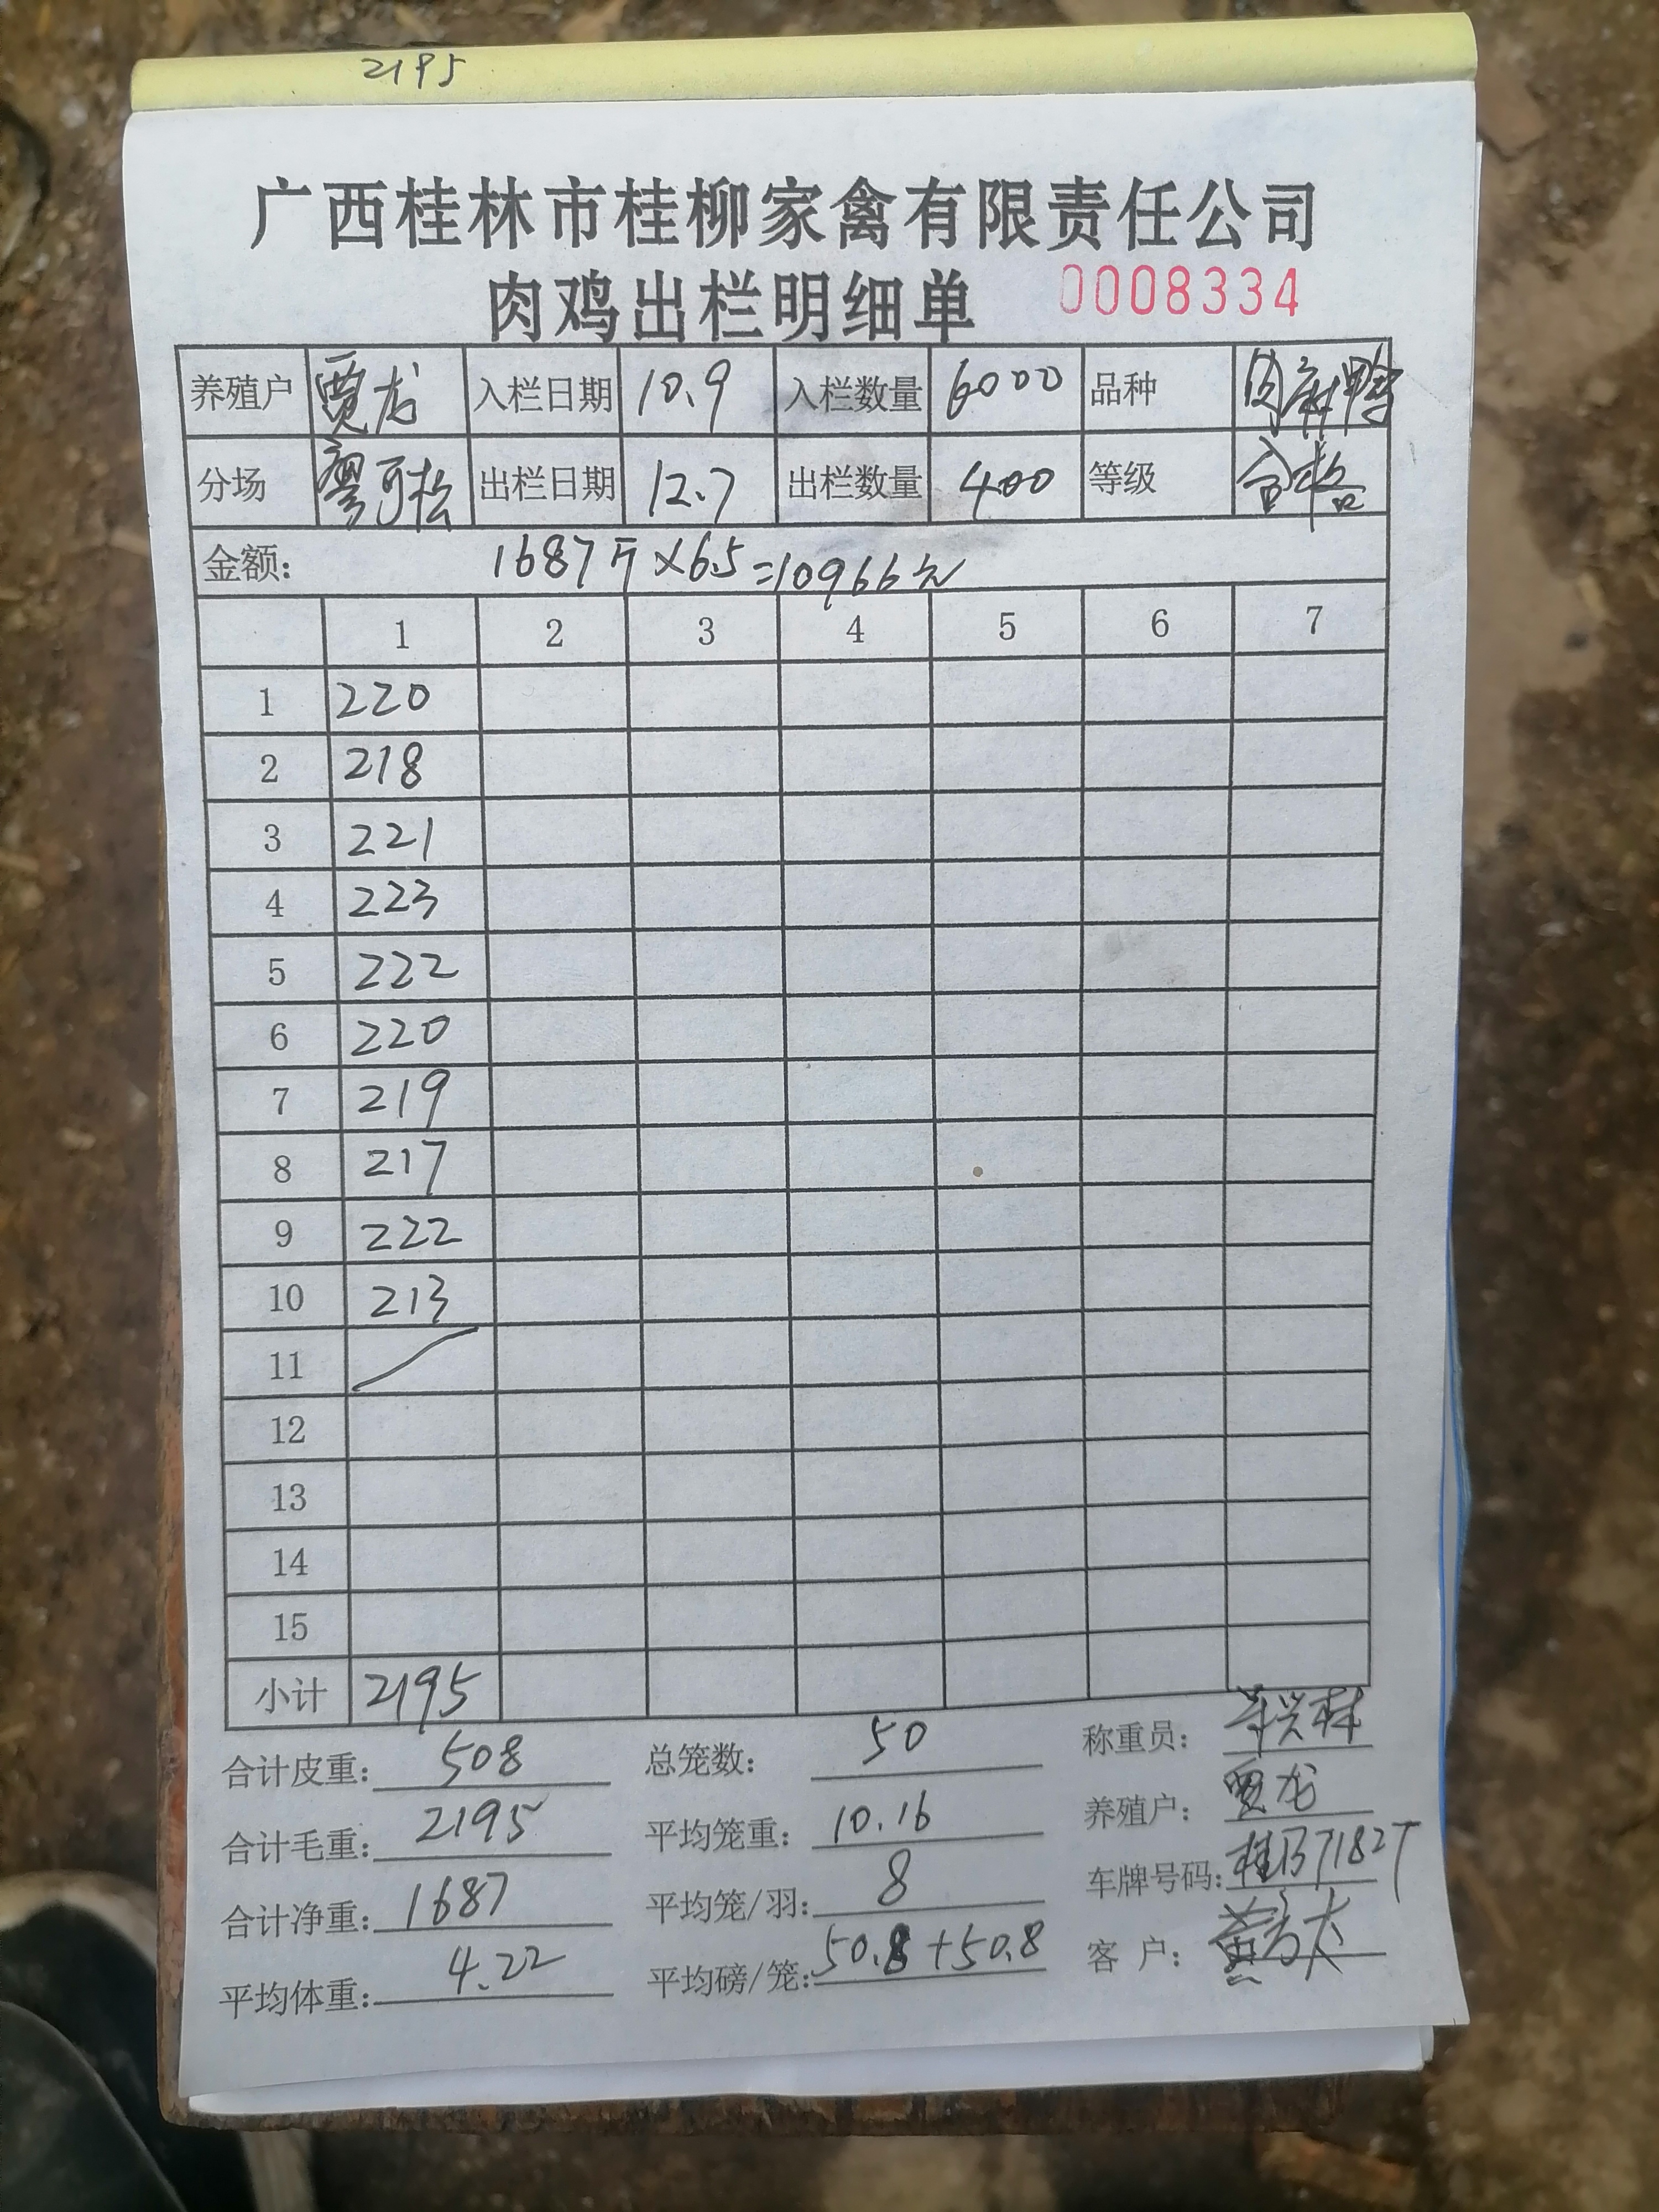 2195
广西桂林市桂柳家禽有限责任公司
肉鸡出栏明细单 0008334
养殖户 贾龙 入栏日期 10.9 入栏数量 6000 品种 肉麻鸭
分场 出栏日期 12.7 出栏数量 400 等级 合格
金额: 1687斤×6.5=10966元
1 2 3 4 5 6 7
1 220
2 218
3 221
4 223
5 222
6 220
7 219
8 217
9 222
10 213
11
12
13
14
15
小计 2195
合计皮重: 508 总笼数: 50 称重员:
合计毛重: 2195 平均笼重: 10.16 养殖户: 贾龙
合计净重: 1687 平均笼/羽: 8 车牌号码:
平均体重: 4.22 平均磅/笼: 50.8+50.8 客 户: